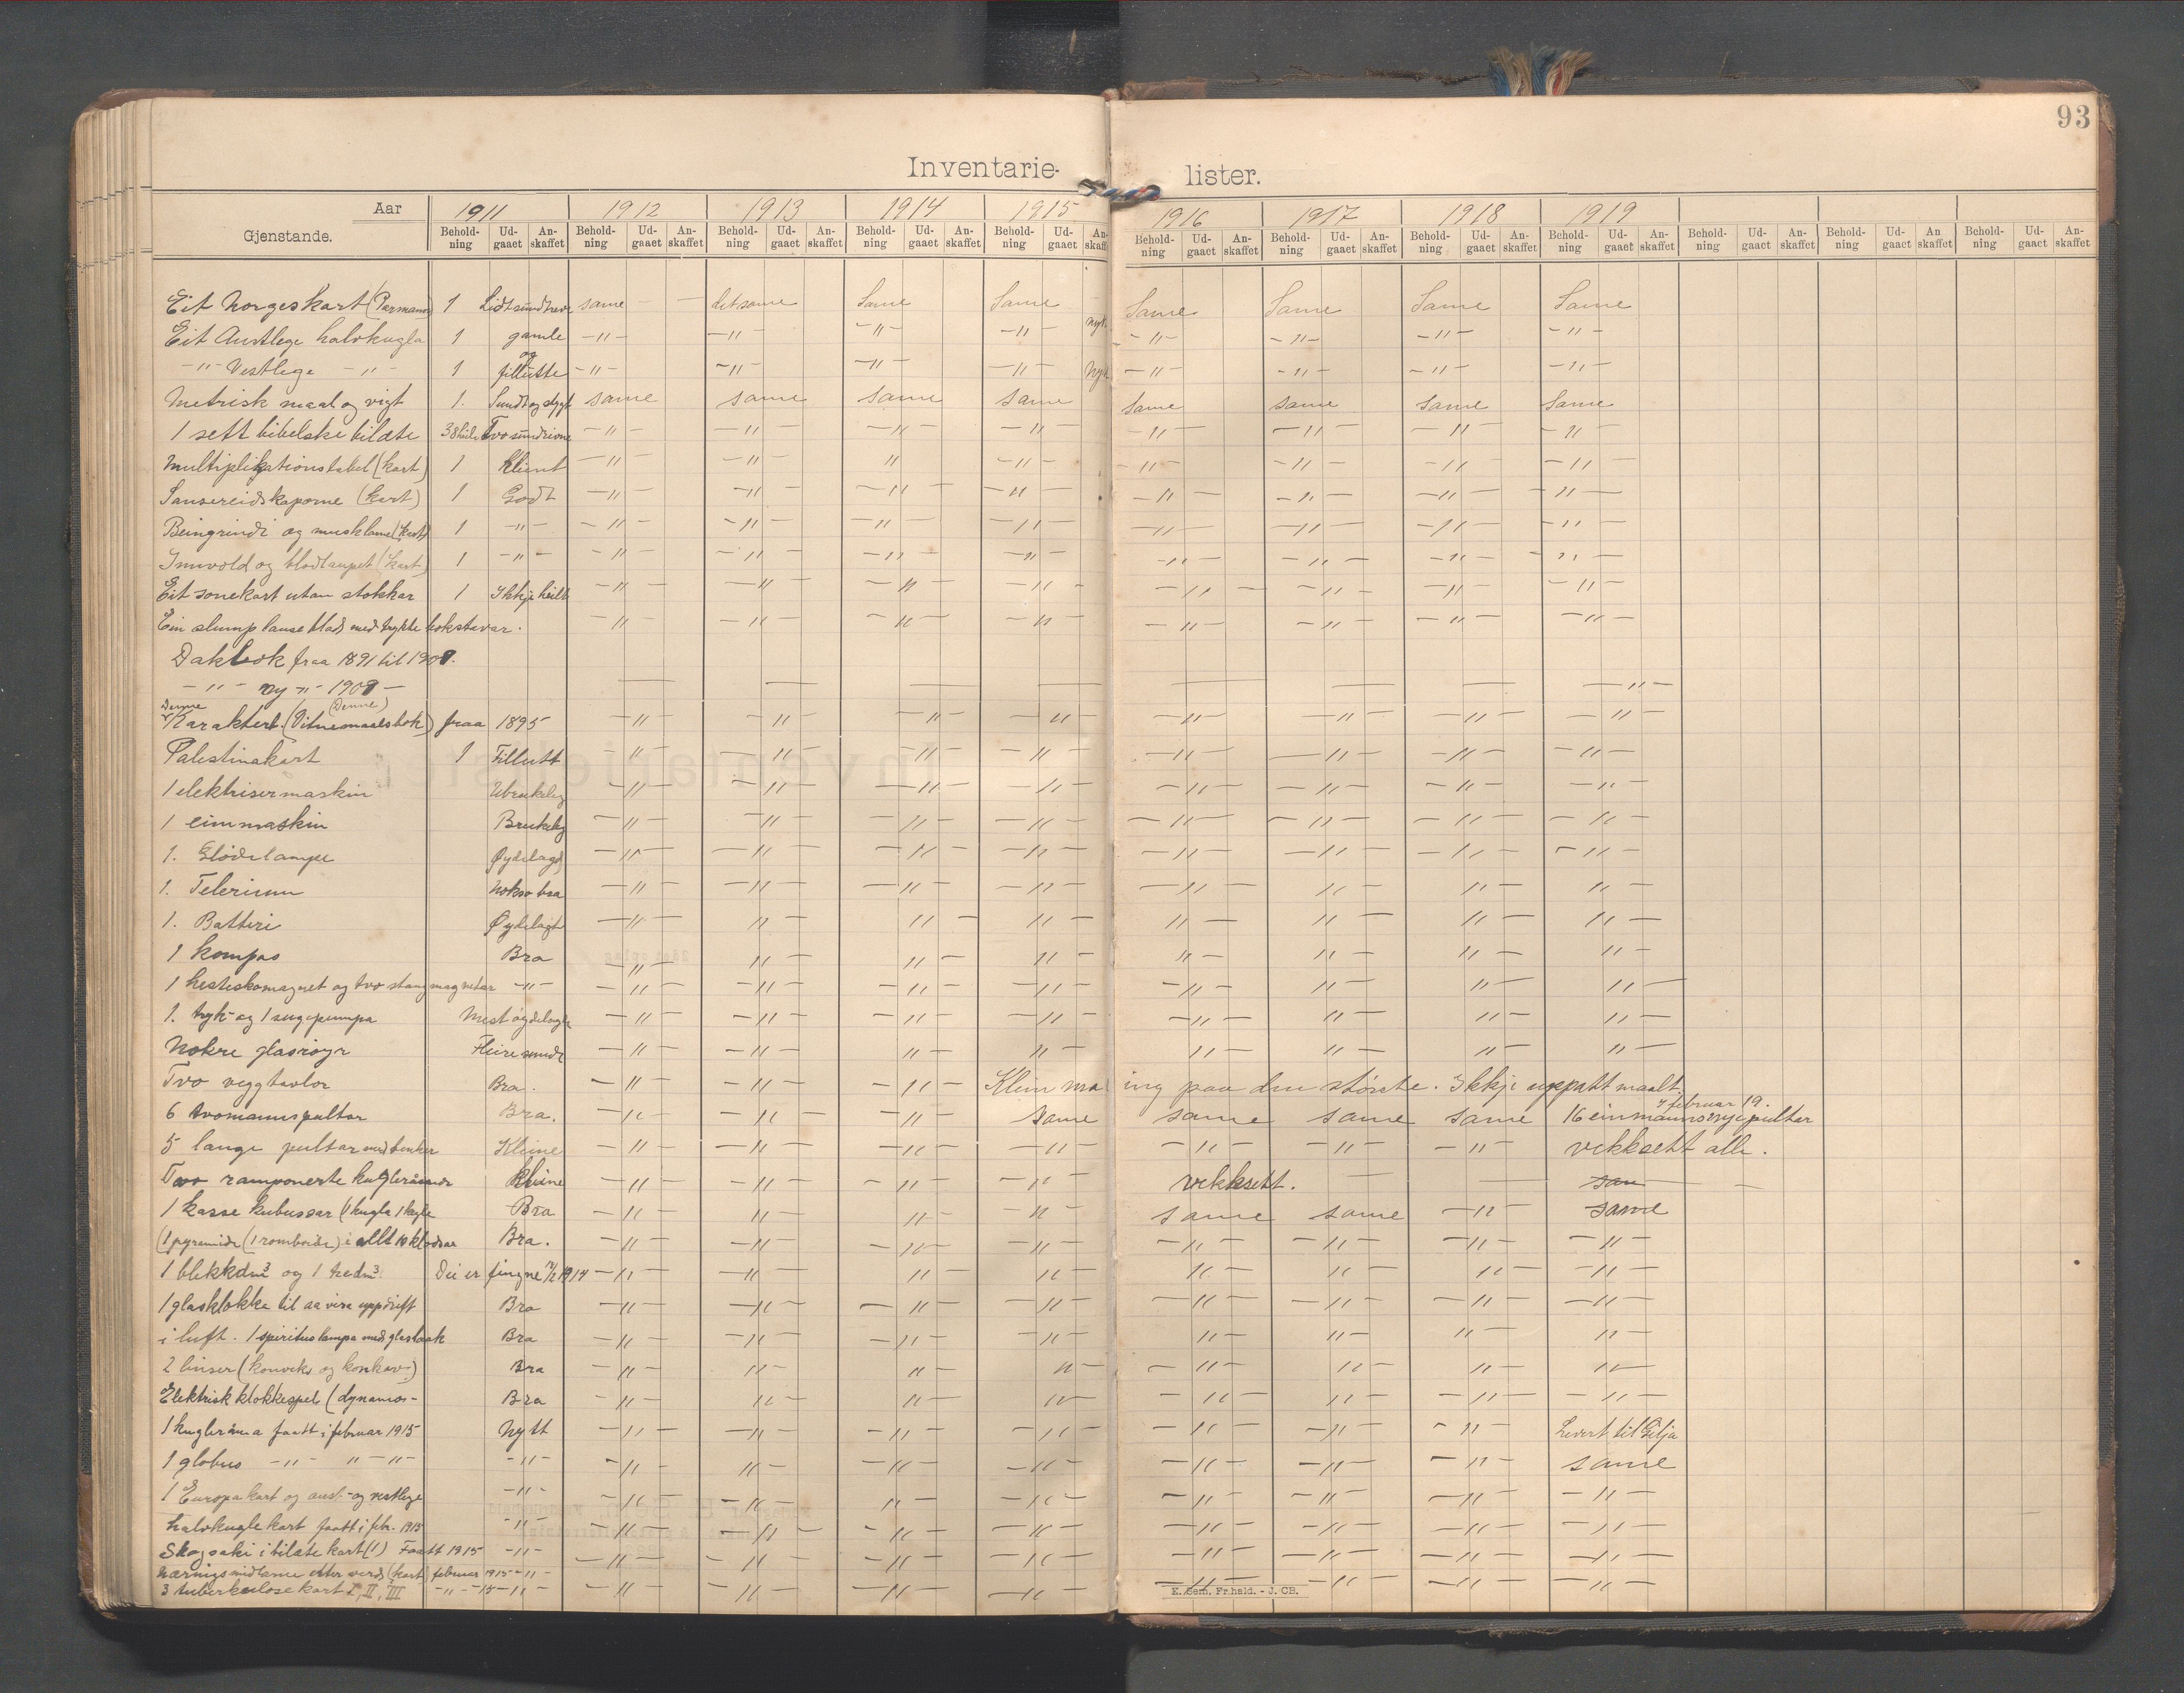 93
Inventarie- lister.
Aar 1911 1912 1913 1914 1915 1916 1917 1918 1919
Gjenstande. Behold-ning Ud-gaaet An-skaffet Behold-ning Ud-gaaet An-skaffet Behold-ning Ud-gaaet An-skaffet Behold-ning Ud-gaaet An-skaffet Behold-ning Ud-gaaet An-skaff Behold-ning Ud-gaaet An-skaffet Behold-ning Ud-gaaet An-skaffet Behold-ning Ud-gaaet An-skaffet Behold-ning Ud-gaaet An-skaffet Behold-ning Ud-gaaet An-skaffet Behold-ning Ud-gaaet An-skaffet Behold-ning Ud-gaaet An-skaffet
Eit Norgeskart (Parmann 1 Lidt sundt same — — det same Same Same Same Same Same Same
Eit Austlege halvkugla 1 gamle —"— —"— —"— —"— nyt. —"— —"— —"— —"—
og
—"— Vestlege —"— 1 fillutte —"— —"— —"— —"— Nyt —"— —"— —"— —"—
Metrisk maal og vigt 1. Sundt og stygt same same same same same same same same
1 sett bibelske bilæte 38 Tvo sundrivne —"— —"— —"— —"— —"— —"— —"— —"—
Multiplikationstabel (kart) 1 Kleint —"— —"— " —"— —"— —"— —"— —"—
Sansereidskaporne (kart) 1 Godt —"— —"— —"— —"— —"— —"— —"— —"—
Beingrindi og musklane (kart) 1 —"— —"— —"— —"— —"— —"— —"— —"— —"—
Innvold og blodlaupet (kart) 1 —"— —"— —"— —"— —"— —"— —"— —"— —"—
Eit sonekart utan stokkar 1 Ikkje heilt —"— —"— —"— —"— —"— —"— —"— —"—
Ein slump lause blad med trykte bokstavar. —"— —"— —"— —"— —"— —"— —"— —"—
Dakbok fraa 1891 til 1908.
—"— ny —"— 1908 — — — — — — — — —"—
Denne (Denne)
Karakterb. (Vitnemaalsbok) fraa 1895 —"— —"— —"— —"— —"— —"— —"— —"—
Palestinakart 1 Fillutt —"— —"— —"— —"— —"— —"— —"— —"—
1 elektrisermaskin Ubrukeleg —"— —"— —"— —"— —"— —"— —"— —"—
1 eimmaskin Brukeleg —"— —"— —"— —"— —"— —"— —"— —"—
1. Glødelampe Øydelagd —"— —"— —"— —"— —"— —"— —"— —"—
1. Telerium Nokso bra —"— —"— —"— —"— —"— "— "— "—
1. Batteri Øydelagt —"— "— "— "— "— "— "— "—
1 kompas Bra —"— "— "— "— "— "— "— "—
1 hesteskomagnet og tvo stangmagnetar —"— —"— —"— —"— —"— —"— "— "— "—
1. tryk- og 1 sugepumpa Mest øydelagde —"— —"— —"— —"— —"— "— "— "—
Nokre glasrøyr Fleire sunde —"— —"— "— "— "— "— "— "—
Tvo veggtavlor Bra. —"— —"— —"— Klein maling paa den største. Ikkje uppatt maalt.
7 februar 19.
6 tvomannspultar Bra. —"— —"— —"— same same same same 16 einmanns nye pultar
5 lange pultar med benker Kleine —"— —"— —"— —"— —"— —"— —"— vekksett alle.
Tvo ramponerte kugleråmer Kleine —"— —"— —"— —"— vekksett. — — sam —
1 kasse kubussar (1 kugla 1 kegle Bra —"— —"— —"— —"— same same —"— same
(1 pyramide (1 romboide) i allt 10 klodsar Bra. —"— —"— —"— —"— —"— —"— —"— —"—
1 blekkdm³ og 1 tredm³. Dei er fingne 1914 —"— —"— "— "— "— "— "— —"—
1 glasklokke til aa visa uppdrift Bra —"— —"— —"— —"— —"— —"— —"— —"—
i luft. 1 spirituslampa med glaslaak Bra —"— —"— —"— —"— "— "— "— "—
2 linser (konveks og konkav) Bra —"— "— " "— —"— "— "— "—
Elektrisk klokkespel (dynamos- Bra —"— "— "— "— —"— —"— —"— —"—
1 kugleråma faatt i februar 1915 Nytt —"— —"— —"— —"— —"— —"— —"— Levert til Gilja
1 globus —"— " —"— —"— —"— "— —"— —"— —"— —"— —"— same
1 Europakart og aust- og vestlege —"— —"— —"— "— —"— —"— —"— —"— —"—
halvkugle kart faatt i febr. 1915 —"— —"— —"— —"— —"— —"— —"— —"— —"—
Skogsaki i bilæte kart (1) Faatt 1915 —"— —"— —"— —"— —"— —"— —"— —"— —"—
Næringsmidlarne etter verd (kart) februar 1915 —"—
3 tuberkulose kart I, II, III —"— —15—"— —"— —"— —"— —"— —"— —"— —"— —"—
E. Sem. Fr.hald. - J. CB.